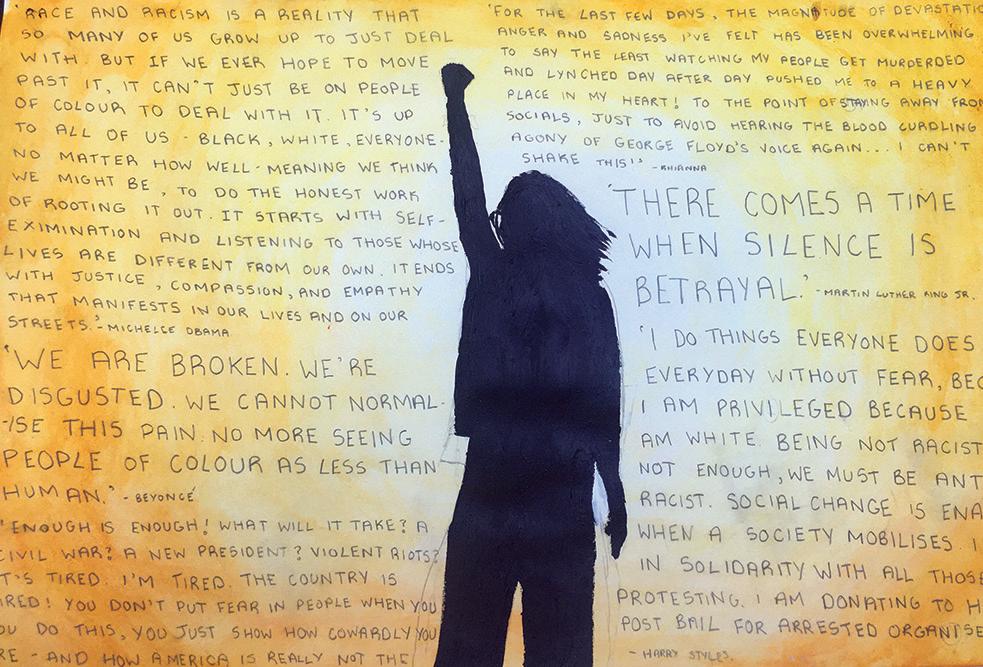 'RACE AND RACISM IS A REALITY THAT
SO MANY OF US GROW UP TO JUST DEAL
WITH. BUT IF WE EVER HOPE TO MOVE
PAST IT, IT CAN'T JUST BE ON PEOPLE
OF COLOUR TO DEAL WITH IT. IT'S UP
TO ALL OF US - BLACK, WHITE, EVERYONE -
NO MATTER HOW WELL-MEANING WE THINK
WE MIGHT BE, TO DO THE HONEST WORK
OF ROOTING IT OUT. IT STARTS WITH SELF-
EXIMINATION AND LISTENING TO THOSE WHOSE
LIVES ARE DIFFERENT FROM OUR OWN. IT ENDS
WITH JUSTICE, COMPASSION, AND EMPATHY
THAT MANIFESTS IN OUR LIVES AND ON OUR
STREETS.' - MICHELLE OBAMA
'WE ARE BROKEN. WE'RE
DISGUSTED. WE CANNOT NORMAL-
-ISE THIS PAIN. NO MORE SEEING
PEOPLE OF COLOUR AS LESS THAN
HUMAN.' - BEYONCÉ
'ENOUGH IS ENOUGH! WHAT WILL IT TAKE? A
CIVIL WAR? A NEW PRESIDENT? VIOLENT RIOTS?
T'S TIRED. I'M TIRED. THE COUNTRY IS
IRED! YOU DON'T PUT FEAR IN PEOPLE WHEN YOU
OU DO THIS, YOU JUST SHOW HOW COWARDLY YOU
RE - AND HOW AMERICA IS REALLY NOT THE
'FOR THE LAST FEW DAYS, THE MAGNITUDE OF DEVASTATIO
ANGER AND SADNESS I'VE FELT HAS BEEN OVERWHELMING
TO SAY THE LEAST WATCHING MY PEOPLE GET MURDERED
AND LYNCHED DAY AFTER DAY PUSHED ME TO A HEAVY
PLACE IN MY HEART! TO THE POINT OF STAYING AWAY FROM
SOCIALS, JUST TO AVOID HEARING THE BLOOD CURDLING
AGONY OF GEORGE FLOYD'S VOICE AGAIN... I CAN'T
SHAKE THIS!' - RHIANNA
'THERE COMES A TIME
WHEN SILENCE IS
BETRAYAL.' - MARTIN LUTHER KING JR.
'I DO THINGS EVERYONE DOES
EVERYDAY WITHOUT FEAR, BEC
I AM PRIVILEGED BECAUSE
AM WHITE. BEING NOT RACIST
NOT ENOUGH, WE MUST BE ANT
RACIST. SOCIAL CHANGE IS ENA
WHEN A SOCIETY MOBILISES I
IN SOLIDARITY WITH ALL THOSE
PROTESTING. I AM DONATING TO H
POST BAIL FOR ARRESTED ORGANISE
- HARRY STYLES.